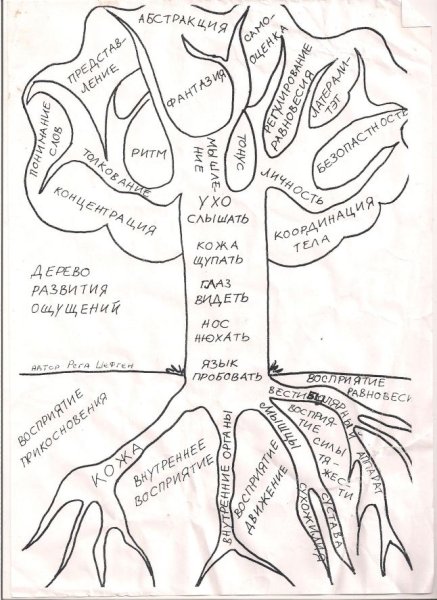 АБСТРАКЦИЯ
САМО-
ОЦЕНКА
ПРЕДСТАВ-
ЛЕНИЕ
ФАНТАЗИЯ
РЕГУЛИРОВАНИЕ
РАВНОВЕСИЯ
ЛАТЕРАЛИ-
ТЭТ
ПОНИМАНИЕ
СЛОВ
ТОЛКОВАНИЕ
РИТМ
МЫШЛЕ-
НИЕ
ТОНУС
БЕЗОПАСТНОСТЬ
ЛИЧНОСТЬ
КОНЦЕНТРАЦИЯ
КООРДИНАЦИЯ
ТЕЛА
УХО
СЛЫШАТЬ
КОЖА
ЩУПАТЬ
ГЛАЗ
ВИДЕТЬ
НОС
НЮХАТЬ
ЯЗЫК
ПРОБОВАТЬ
ДЕРЕВО
РАЗВИТИЯ
ОЩУЩЕНИЙ
АВТОР РЕГА ШЕФГЕН
ВОСПРИЯТИЕ
РАВНОВЕСИ
ВОСПРИЯТИЕ
ПРИКОСНОВЕНИЯ
КОЖА
ВНУТРЕННЕЕ
ВОСПРИЯТИЕ
ВНУТРЕННИЕ ОРГАНЫ
ВОСПРИЯТИЕ
ДВИЖЕНИЕ
МЫШЦЫ
СУХОЖИЛИЯ
СУСТАВА
ВОСПРИЯ-
ТИЕ
СИЛЫ
ТЯ-
ЖЕСТИ
ВЕСТИБУЛЯРНЫЙ АППАРАТ